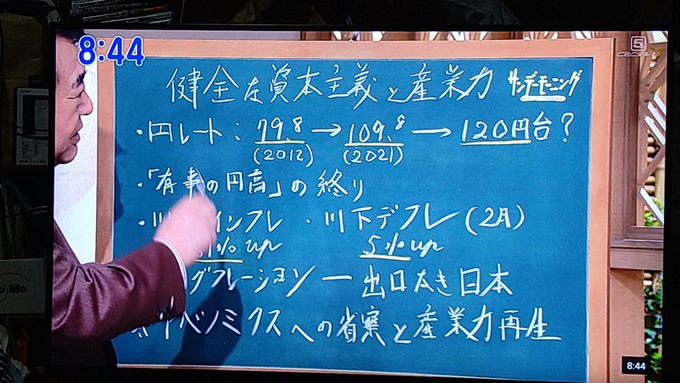 8:44
健全な資本主義と産業力
サンデーモーニング
・円レート：79.8→109.8→120円台？
(2012) (2021)
・「有事の円高」の終り
・川 インフレ・川下デフレ(2月)
%up 5%up
グフレーション―出口なき日本
ベノミクスへの省察と産業力再生
8:44